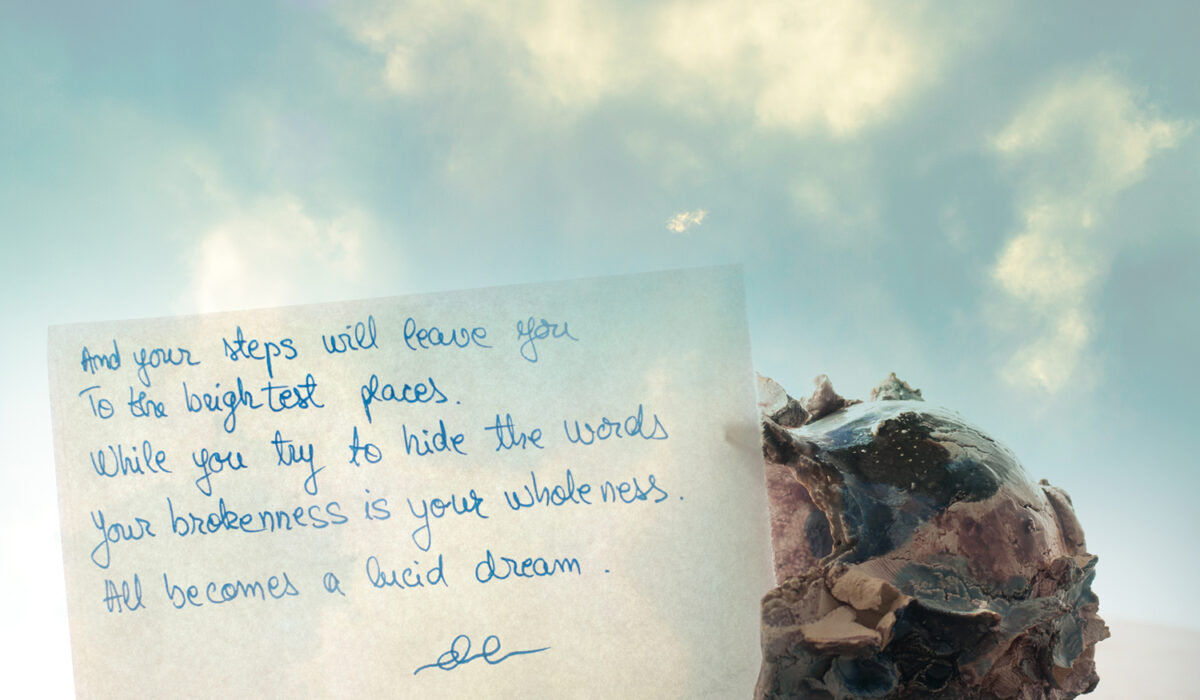 And your steps will leave you
To the brightest places.
While you try to hide the words
Your brokenness is your wholeness.
All becomes a lucid dream.